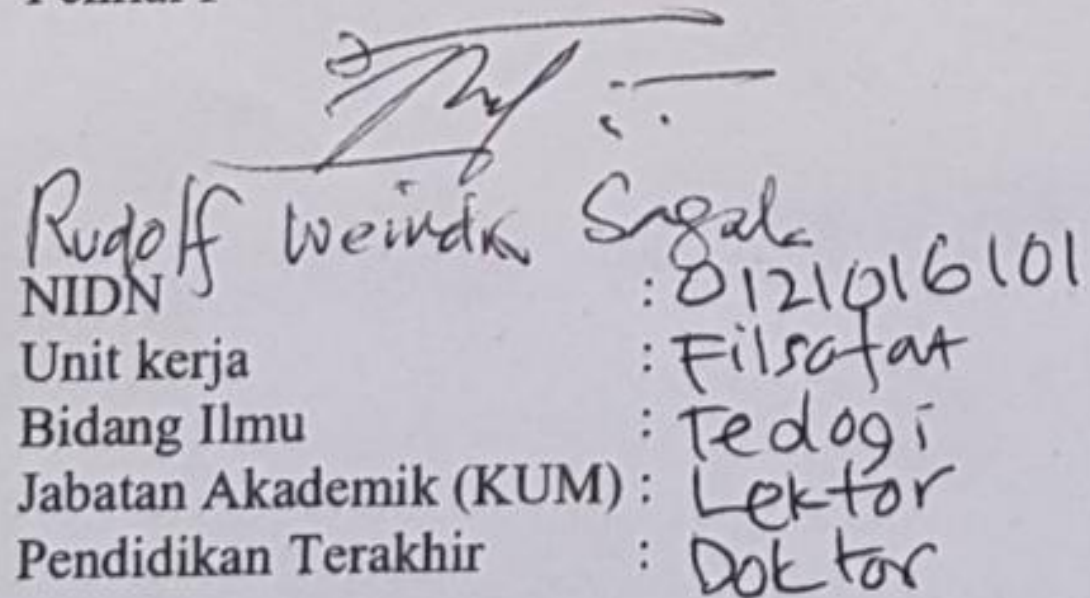 Rudolf Weindra Sagala
NIDN : 0121016101
Unit kerja : Filsafat
Bidang Ilmu : Teologi
Jabatan Akademik (KUM) : Lektor
Pendidikan Terakhir : Doktor